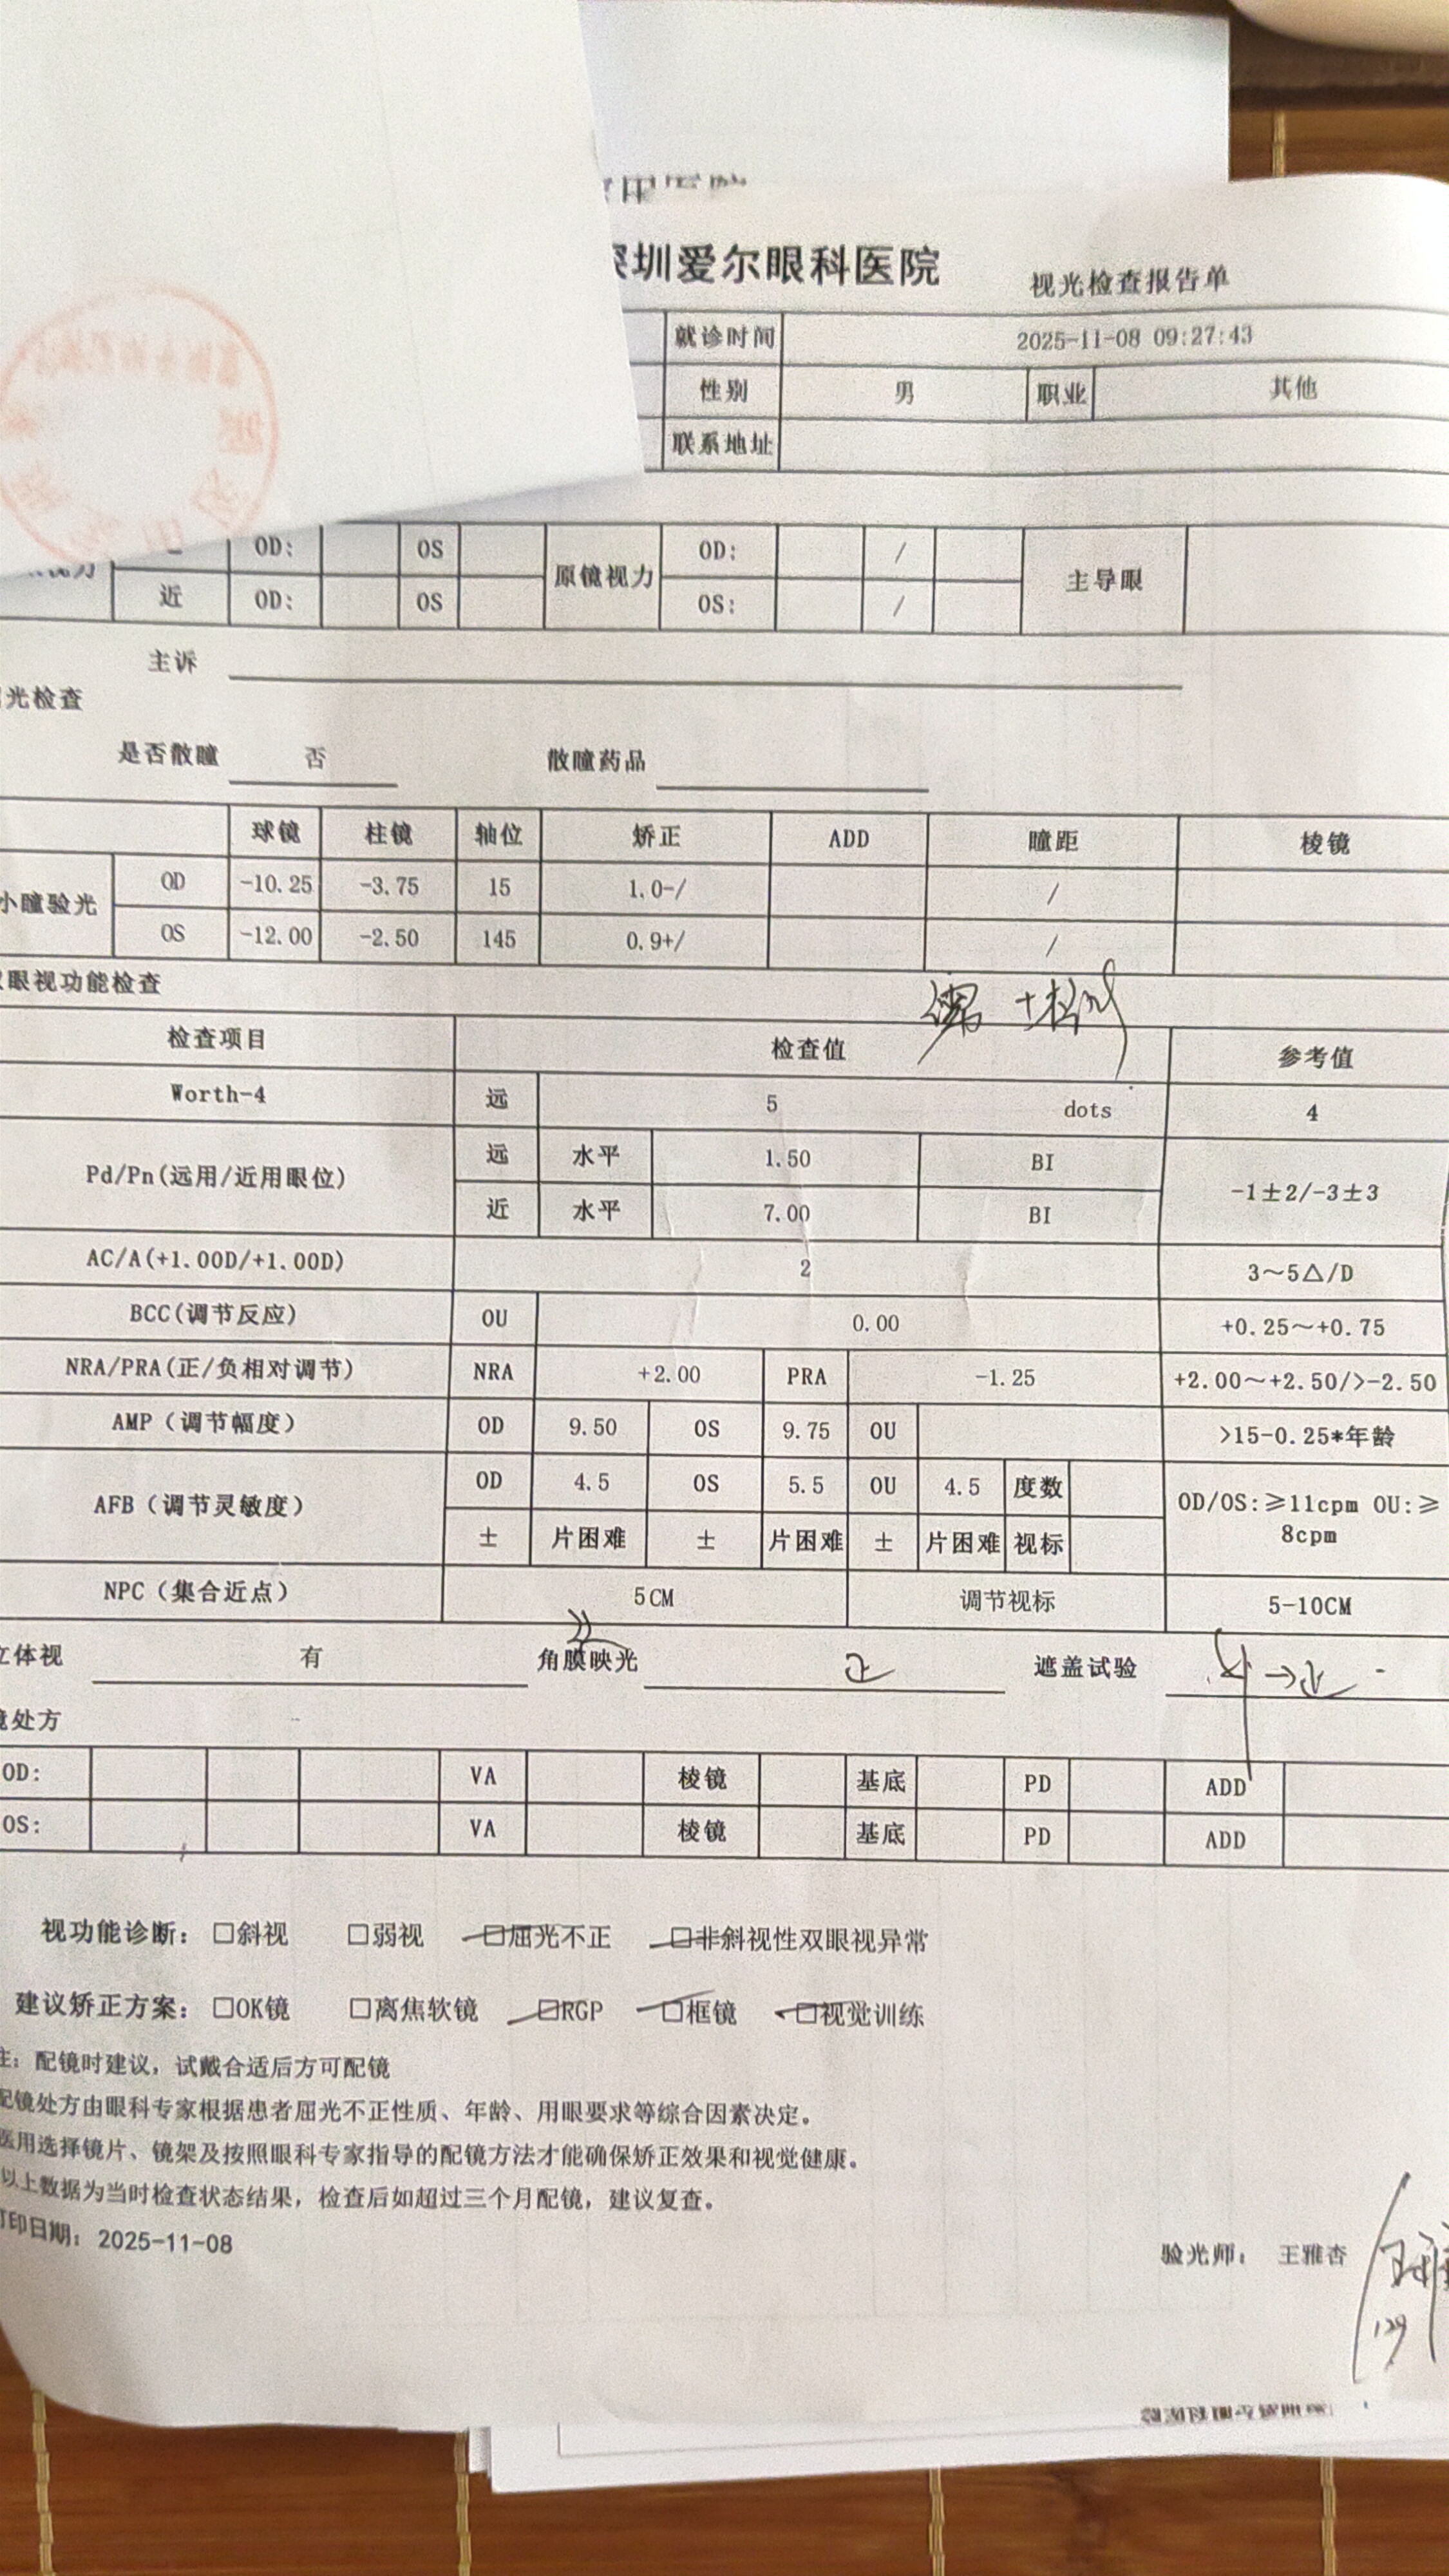 圳爱尔眼科医院 视光检查报告单
就诊时间 2025-11-08 09:27:43
性别 男 职业 其他
联系地址
OD: OS 原镜视力 OD: / 主导眼
近 OD: OS OS: /
主诉
光检查
是否散瞳 否 散瞳药品
球镜 柱镜 轴位 矫正 ADD 瞳距 棱镜
小瞳验光 OD -10.25 -3.75 15 1.0-/ /
OS -12.00 -2.50 145 0.9+/ /
眼视功能检查
检查项目 检查值 参考值
Worth-4 远 5 dots 4
Pd/Pn(远用/近用眼位) 远 水平 1.50 BI -1±2/-3±3
近 水平 7.00 BI
AC/A(+1.00D/+1.00D) 2 3～5△/D
BCC(调节反应) OU 0.00 +0.25～+0.75
NRA/PRA(正/负相对调节) NRA +2.00 PRA -1.25 +2.00～+2.50/>-2.50
AMP（调节幅度） OD 9.50 OS 9.75 OU >15-0.25*年龄
AFB（调节灵敏度） OD 4.5 OS 5.5 OU 4.5 度数 OD/OS:≥11cpm OU:≥
± 片困难 ± 片困难 ± 片困难 视标 8cpm
NPC（集合近点） 5CM 调节视标 5-10CM
立体视 有 角膜映光 正 遮盖试验
镜处方
OD: VA 棱镜 基底 PD ADD
OS: VA 棱镜 基底 PD ADD
视功能诊断: □斜视 □弱视 □屈光不正 □非斜视性双眼视异常
建议矫正方案: □OK镜 □离焦软镜 □RGP □框镜 □视觉训练
注: 配镜时建议, 试戴合适后方可配镜
配镜处方由眼科专家根据患者屈光不正性质、年龄、用眼要求等综合因素决定。
医用选择镜片、镜架及按照眼科专家指导的配镜方法才能确保矫正效果和视觉健康。
以上数据为当时检查状态结果, 检查后如超过三个月配镜, 建议复查。
打印日期: 2025-11-08
验光师: 王雅杏